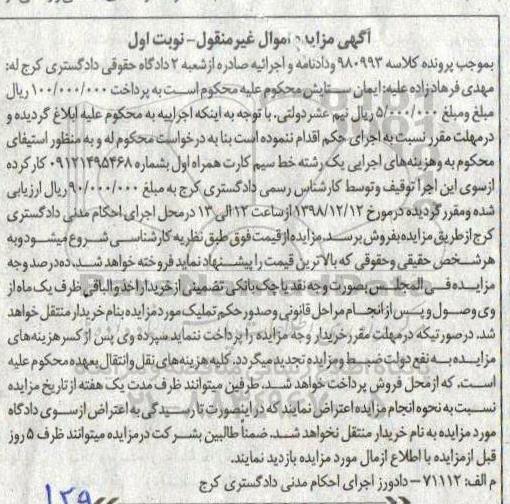 آگهی مزایده اموال غیر منقول - نوبت اول
بموجب پرونده کلاسه ۹۸۰۹۹۲ ودادنامه و اجرائیه صادره ازشعبه ۲ دادگاه حقوقی دادگستری کرج له:
مهدی فرهادزاده علیه: ایمان ستایش محکوم علیه محکوم است به پرداخت ۱۰۰/۰۰۰/۰۰۰ ریال
مبلغ ومبلغ ۵/۰۰۰/۰۰۰ ریال نیم عشر دولتی. با توجه به اینکه اجراییه به محکوم علیه ابلاغ گردیده و
در مهلت مقرر نسبت به اجرای حکم اقدام ننموده است بنا به درخواست محکوم له و به منظور استیفای
محکوم به وهزینه های اجرایی یک رشته خط سیم کارت همراه اول بشماره ۰۹۱۲۱۴۹۵۴۶۸ کار کرده
ازسوی این اجرا توقیف وتوسط کارشناس رسمی دادگستری کرج به مبلغ ۹۰/۰۰۰/۰۰۰ ریال ارزیابی
شده ومقرر گردیده در مورخ ۱۳۹۸/۱۲/۱۲ ازساعت ۱۲ الی ۱۳ در محل اجرای احکام مدنی دادگستری
کرج ازطریق مزایده بفروش برسد. مزایده ازقیمت فوق طبق نظریه کارشناسی شروع میشود وبه
هر شخص حقیقی وحقوقی که بالاترین قیمت را پیشنهاد نماید فروخته خواهد شد. ده درصد وجه
مزایده فی المجلس بصورت وجه نقد یا چک بانکی تضمینی از خریدار اخذ و الباقی ظرف یک ماه از
وی وصول و پس از انجام مراحل قانونی وصدور حکم تملیک مورد مزایده بنام خریدار منتقل خواهد
شد. درصورتیکه درمهلت مقرر خریدار وجه مزایده را پرداخت ننماید سپرده وی پس از کسر هزینه های
مزایده به نفع دولت ضبط ومزایده تجدید میگردد. کلیه هزینه های نقل وانتقال بعهده محکوم علیه
است. که ازمحل فروش پرداخت خواهد شد. طرفین میتوانند ظرف مدت یک هفته از تاریخ مزایده
نسبت به نحوه انجام مزایده اعتراض نمایند که دراینصورت تا رسیدگی به اعتراض ازسوی دادگاه
مورد مزایده به نام خریدار منتقل نخواهد شد. ضمنا طالبین بشرکت درمزایده میتوانند ظرف ۵ روز
قبل ازمزایده با اطلاع ازمال مورد مزایده بازدید نمایند.
م الف: ۷۱۱۱۲ - دادورز اجرای احکام مدنی دادگستری کرج
۱۲۹